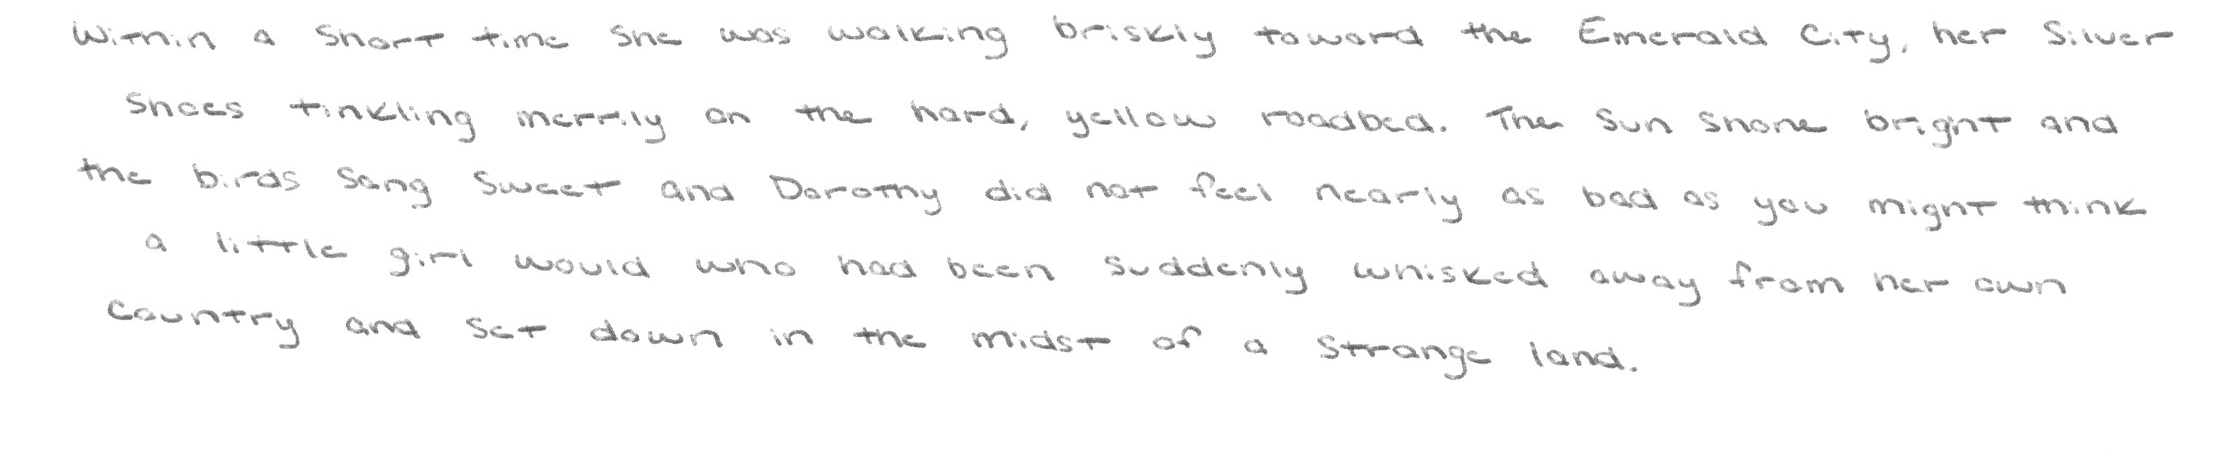 Within a short time she was walking briskly toward the Emerald City, her Silver
Shoes tinkling merrily on the hard, yellow roadbed. The sun shone bright and
the birds sang sweet and Dorothy did not feel nearly as bad as you might think
a little girl would who had been suddenly whisked away from her own
country and set down in the midst of a strange land.